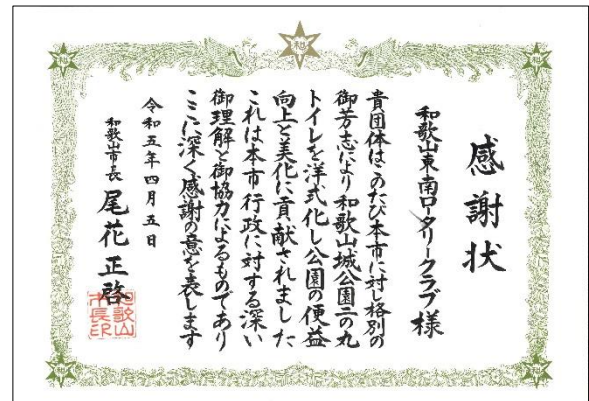 感謝状
和歌山東南ロータリークラブ様
貴団体はこのたび本市に対し格別の
御芳志により和歌山城公園二の丸
トイレを洋式化し公園の便益
向上と美化に貢献されました
これは本市行政に対する深い
御理解と御協力によるものであり
ここに深く感謝の意を表します
令和五年四月五日
和歌山市長 尾花正啓
和歌山市長印